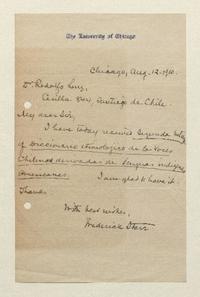 The University of Chicago
Chicago, Aug. 12, 1910.
Dr. Rodolfo Lenz,
Casilla 844, Santiago de Chile.
My dear Sir,
I have today received Segunda Entrega
of Diccionario etimolojico de las Voces
Chilenas derivadas de Lenguas indíjenas
Americanas. I am glad to have it.
Thanks.
With best wishes,
Frederick Starr